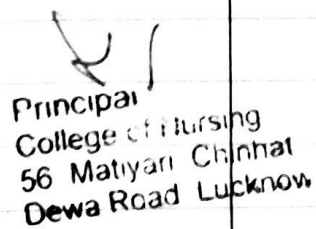 Principal
College of Nursing
56 Matiyari Chinhat
Dewa Road Lucknow